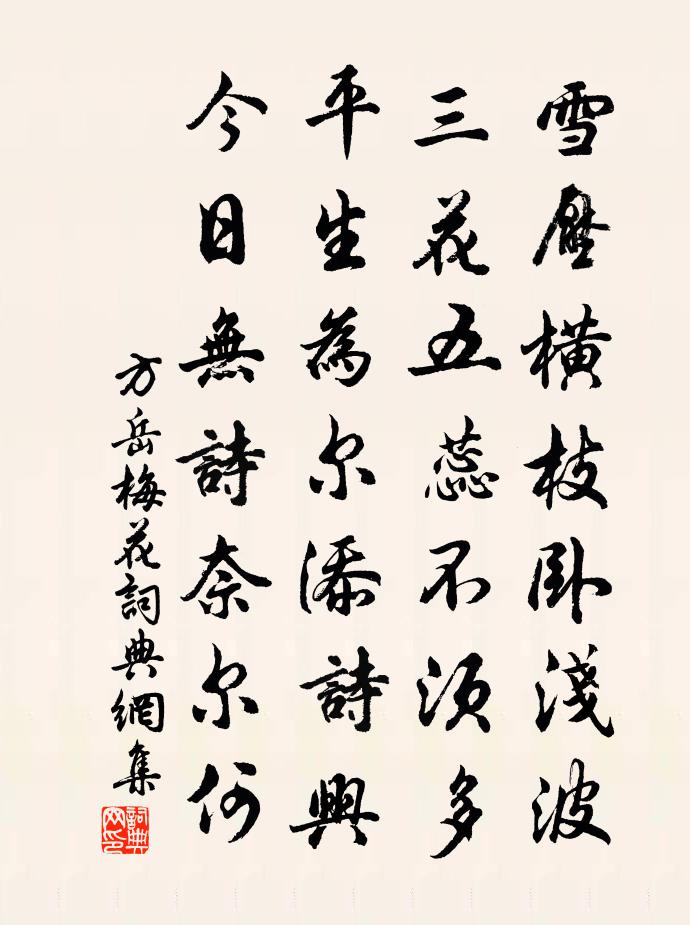 雪壓橫枝卧淺波
三花五蕊不須多
平生為尔添詩興
今日無詩奈尔何
方岳梅花詞典網集
詞典
网印